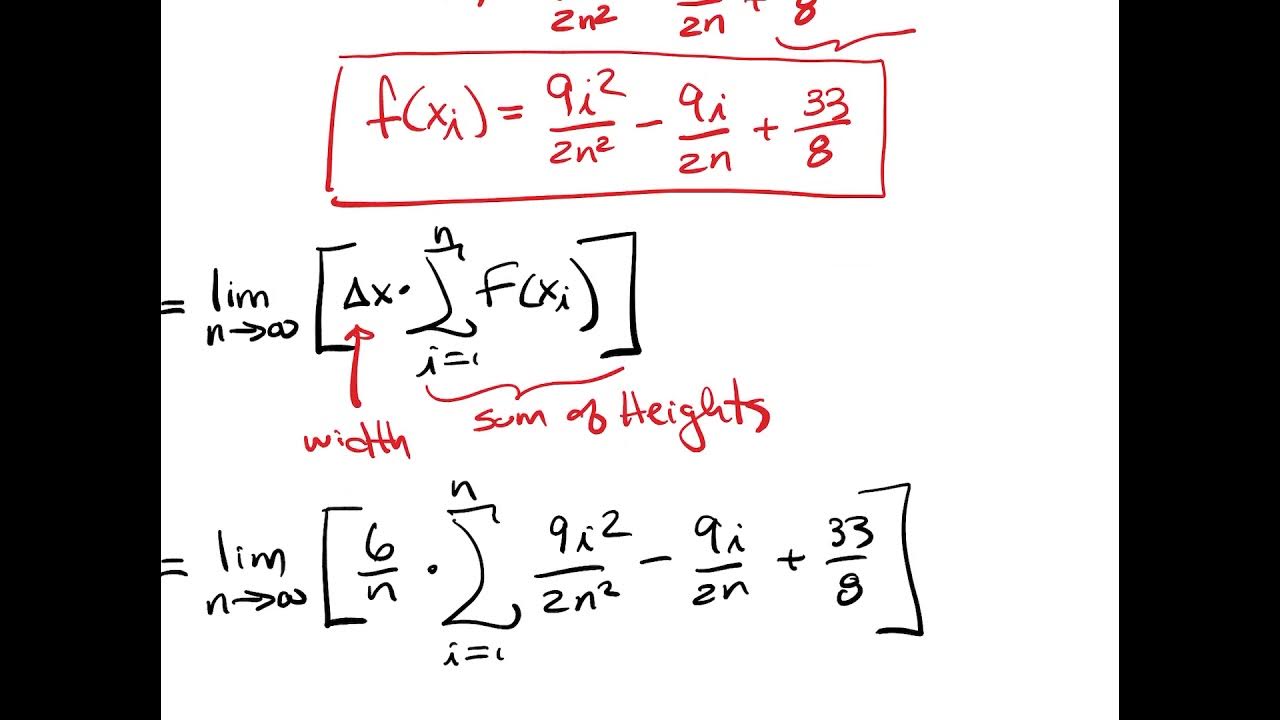 2n² 2n + 8
f(xᵢ) = 9i²/2n² − 9i/2n + 33/8
= lim n→∞ [Δx · ∑ n i=1 f(xᵢ)]
width
sum of Heights
= lim n→∞ [6/n · ∑ n i=1 9i²/2n² − 9i/2n + 33/8]